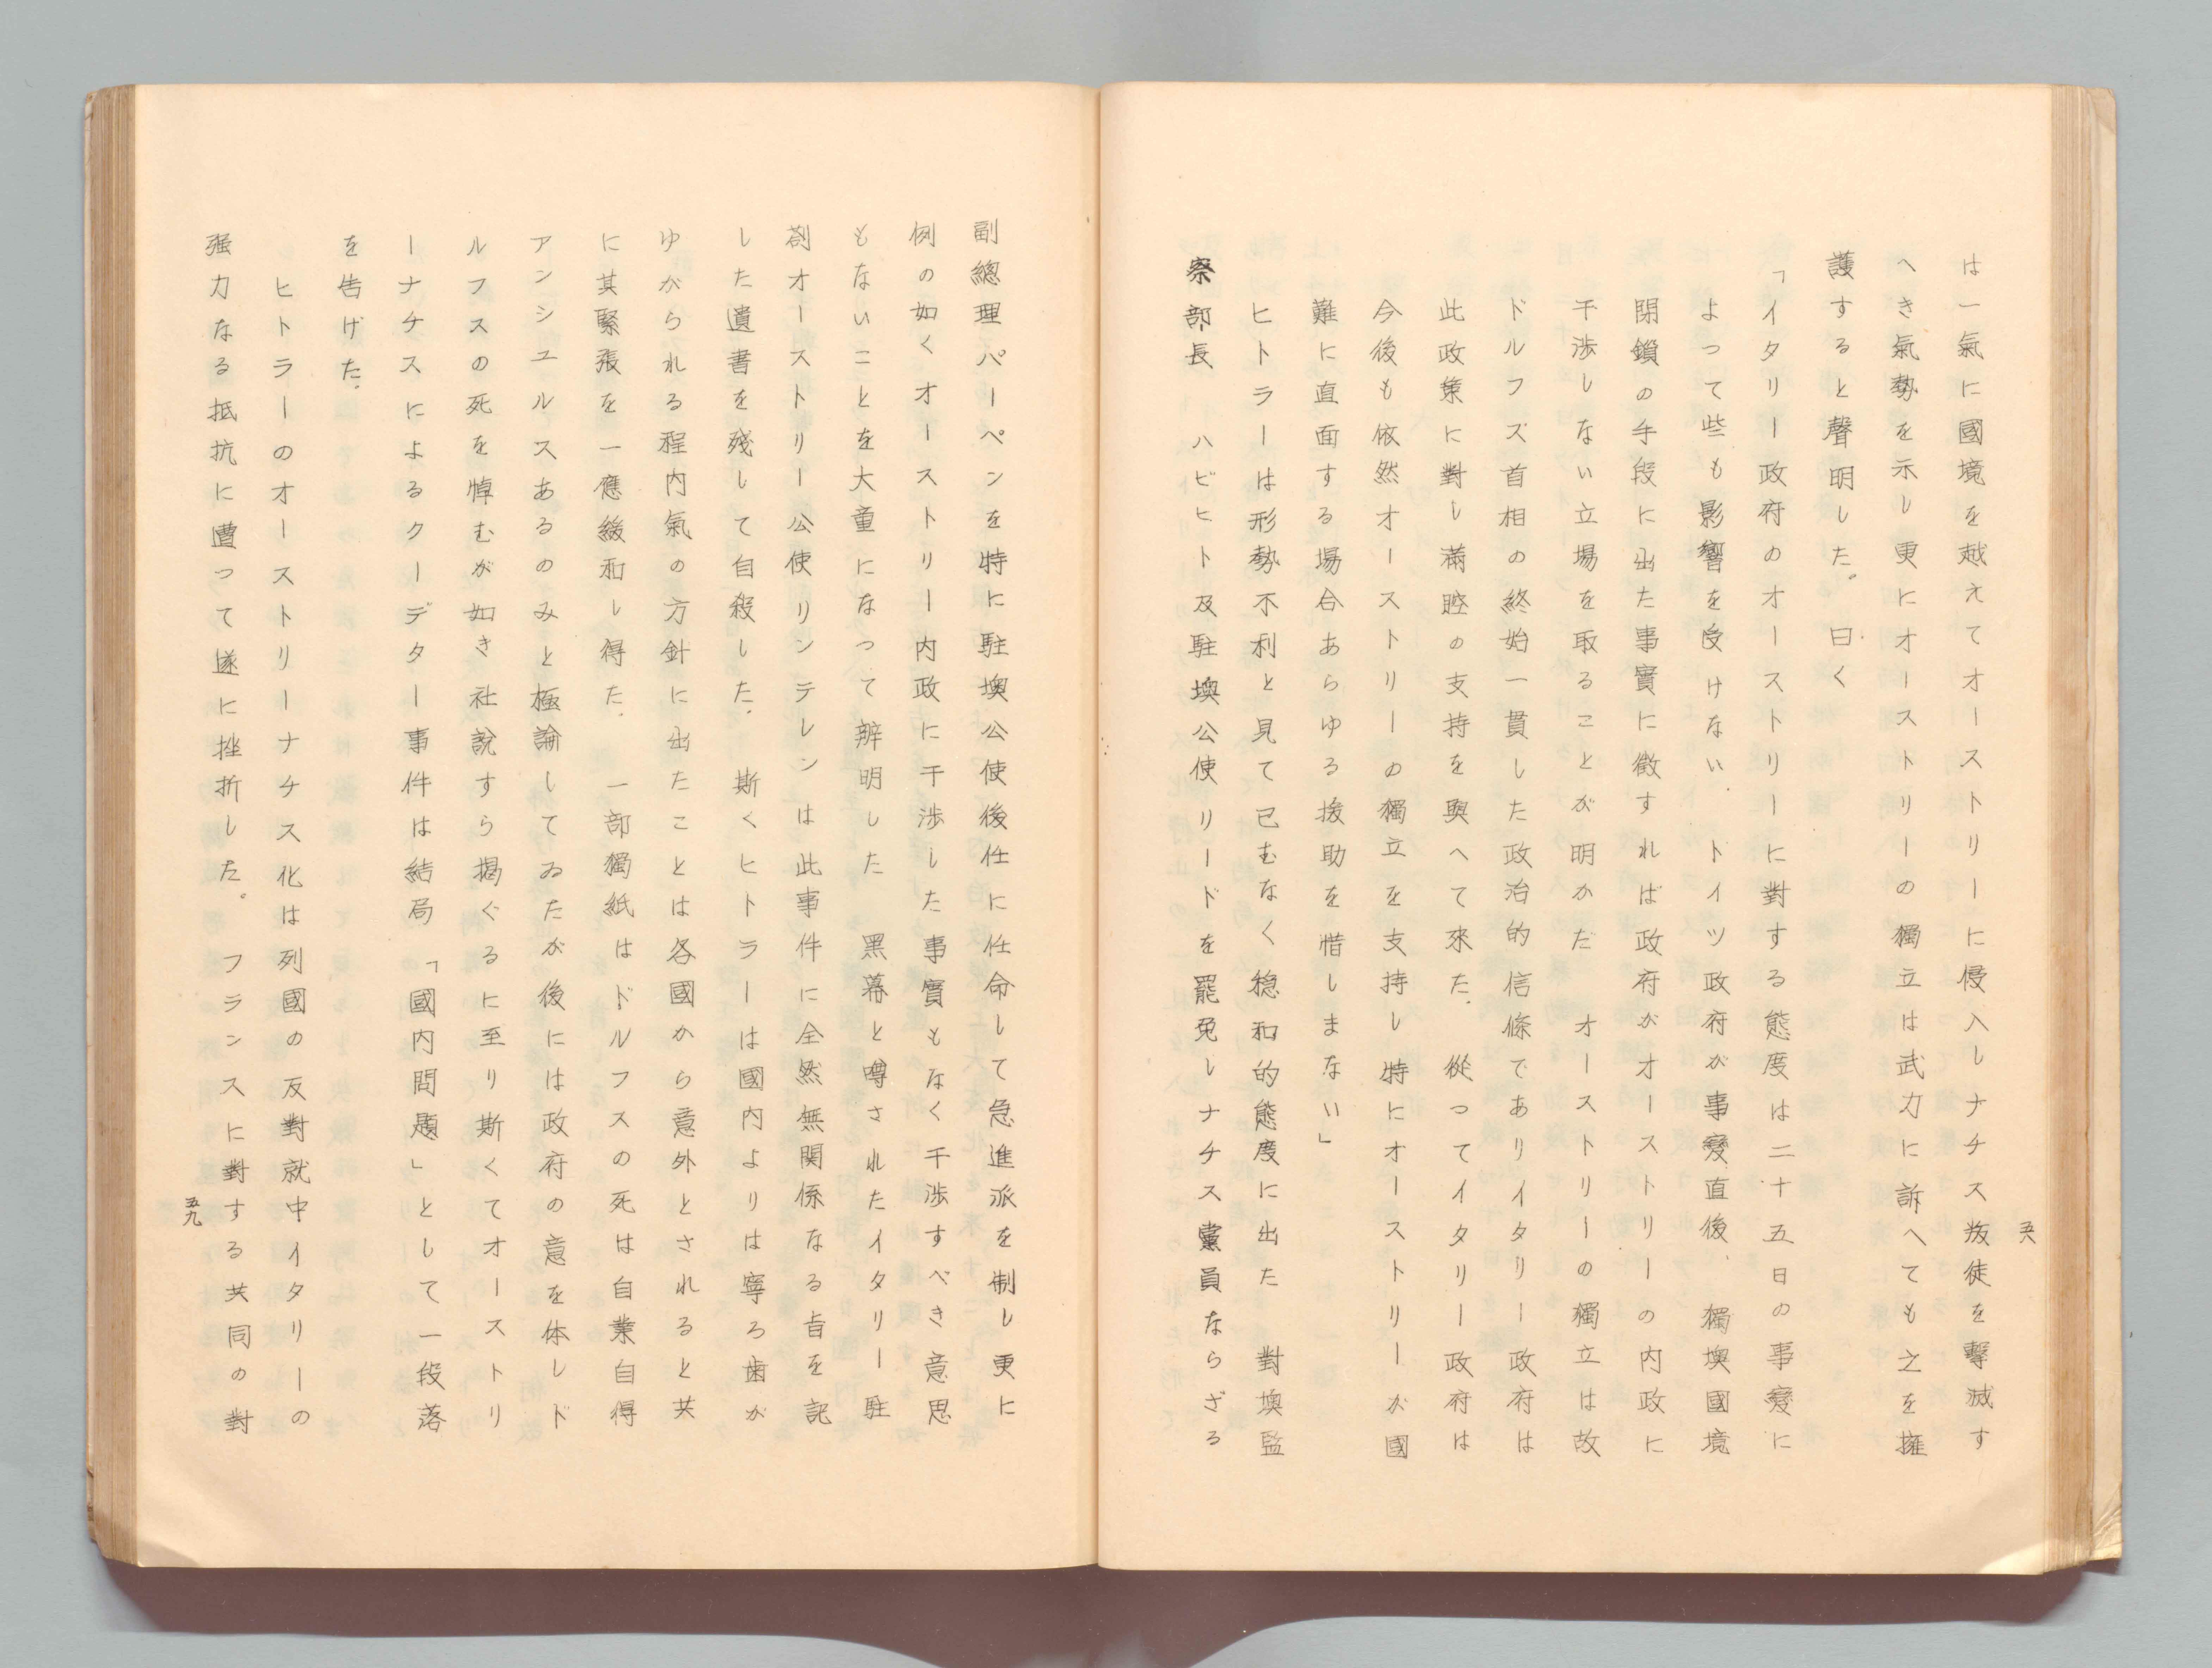 は一氣に國境を越えてオーストリーに侵入しナチス叛徒を擊滅す
へき氣勢を示し更にオーストリーの獨立は武力に訴へても之を擁
護すると聲明した。曰く
「イタリー政府のオーストリーに對する態度は二十五日の事變に
よって些も影響を受けない。トイツ政府が事變直後、獨墺國境
閉鎖の手段に出た事實に徴すれば政府がオーストリーの内政に
干渉しない立場を取ることが明かだ オーストリーの獨立は故
ドルフズ首相の終始一貫した政治的信條でありイタリー政府は
此政策に對し滿腔の支持を與へて來た。從つてイタリー政府は
今後も依然オーストリーの獨立を支持し特にオーストリーが國
難に直面する場合あらゆる援助を惜しまない」
ヒトラーは形勢不利と見て已むなく穏和的態度に出た 對墺監
察部長 ハビヒト及駐墺公使リードを罷免しナチス黨員ならざる
五八
副總理パーペンを特に駐墺公使後任に任命して急進派を制し更に
例の如くオーストリー内政に干渉した事實もなく干渉すべき意思
もないことを大童になって辨明した 黑幕と噂されたイタリー駐
剳オーストリー公使リンテレンは此事件に全然無關係なる旨を記
した遺書を殘して自殺した。斯くヒトラーは國内よりは寧ろ歯が
ゆがられる程内氣の方針に出たことは各國から意外とされると共
に其緊張を一應緩和し得た。一部獨紙はドルフスの死は自業自得
アンシユルスあるのみと極論してゐたが後には政府の意を体しド
ルフスの死を悼むが如き社說すら揭ぐるに至り斯くてオーストリ
ーナチスによるクーデター事件は結局「國内問題」として一段落
を告げた。
ヒトラーのオーストリーナチス化は列國の反對就中イタリーの
强力なる抵抗に遭つて遂に挫折した。フランスに對する共同の對
五九